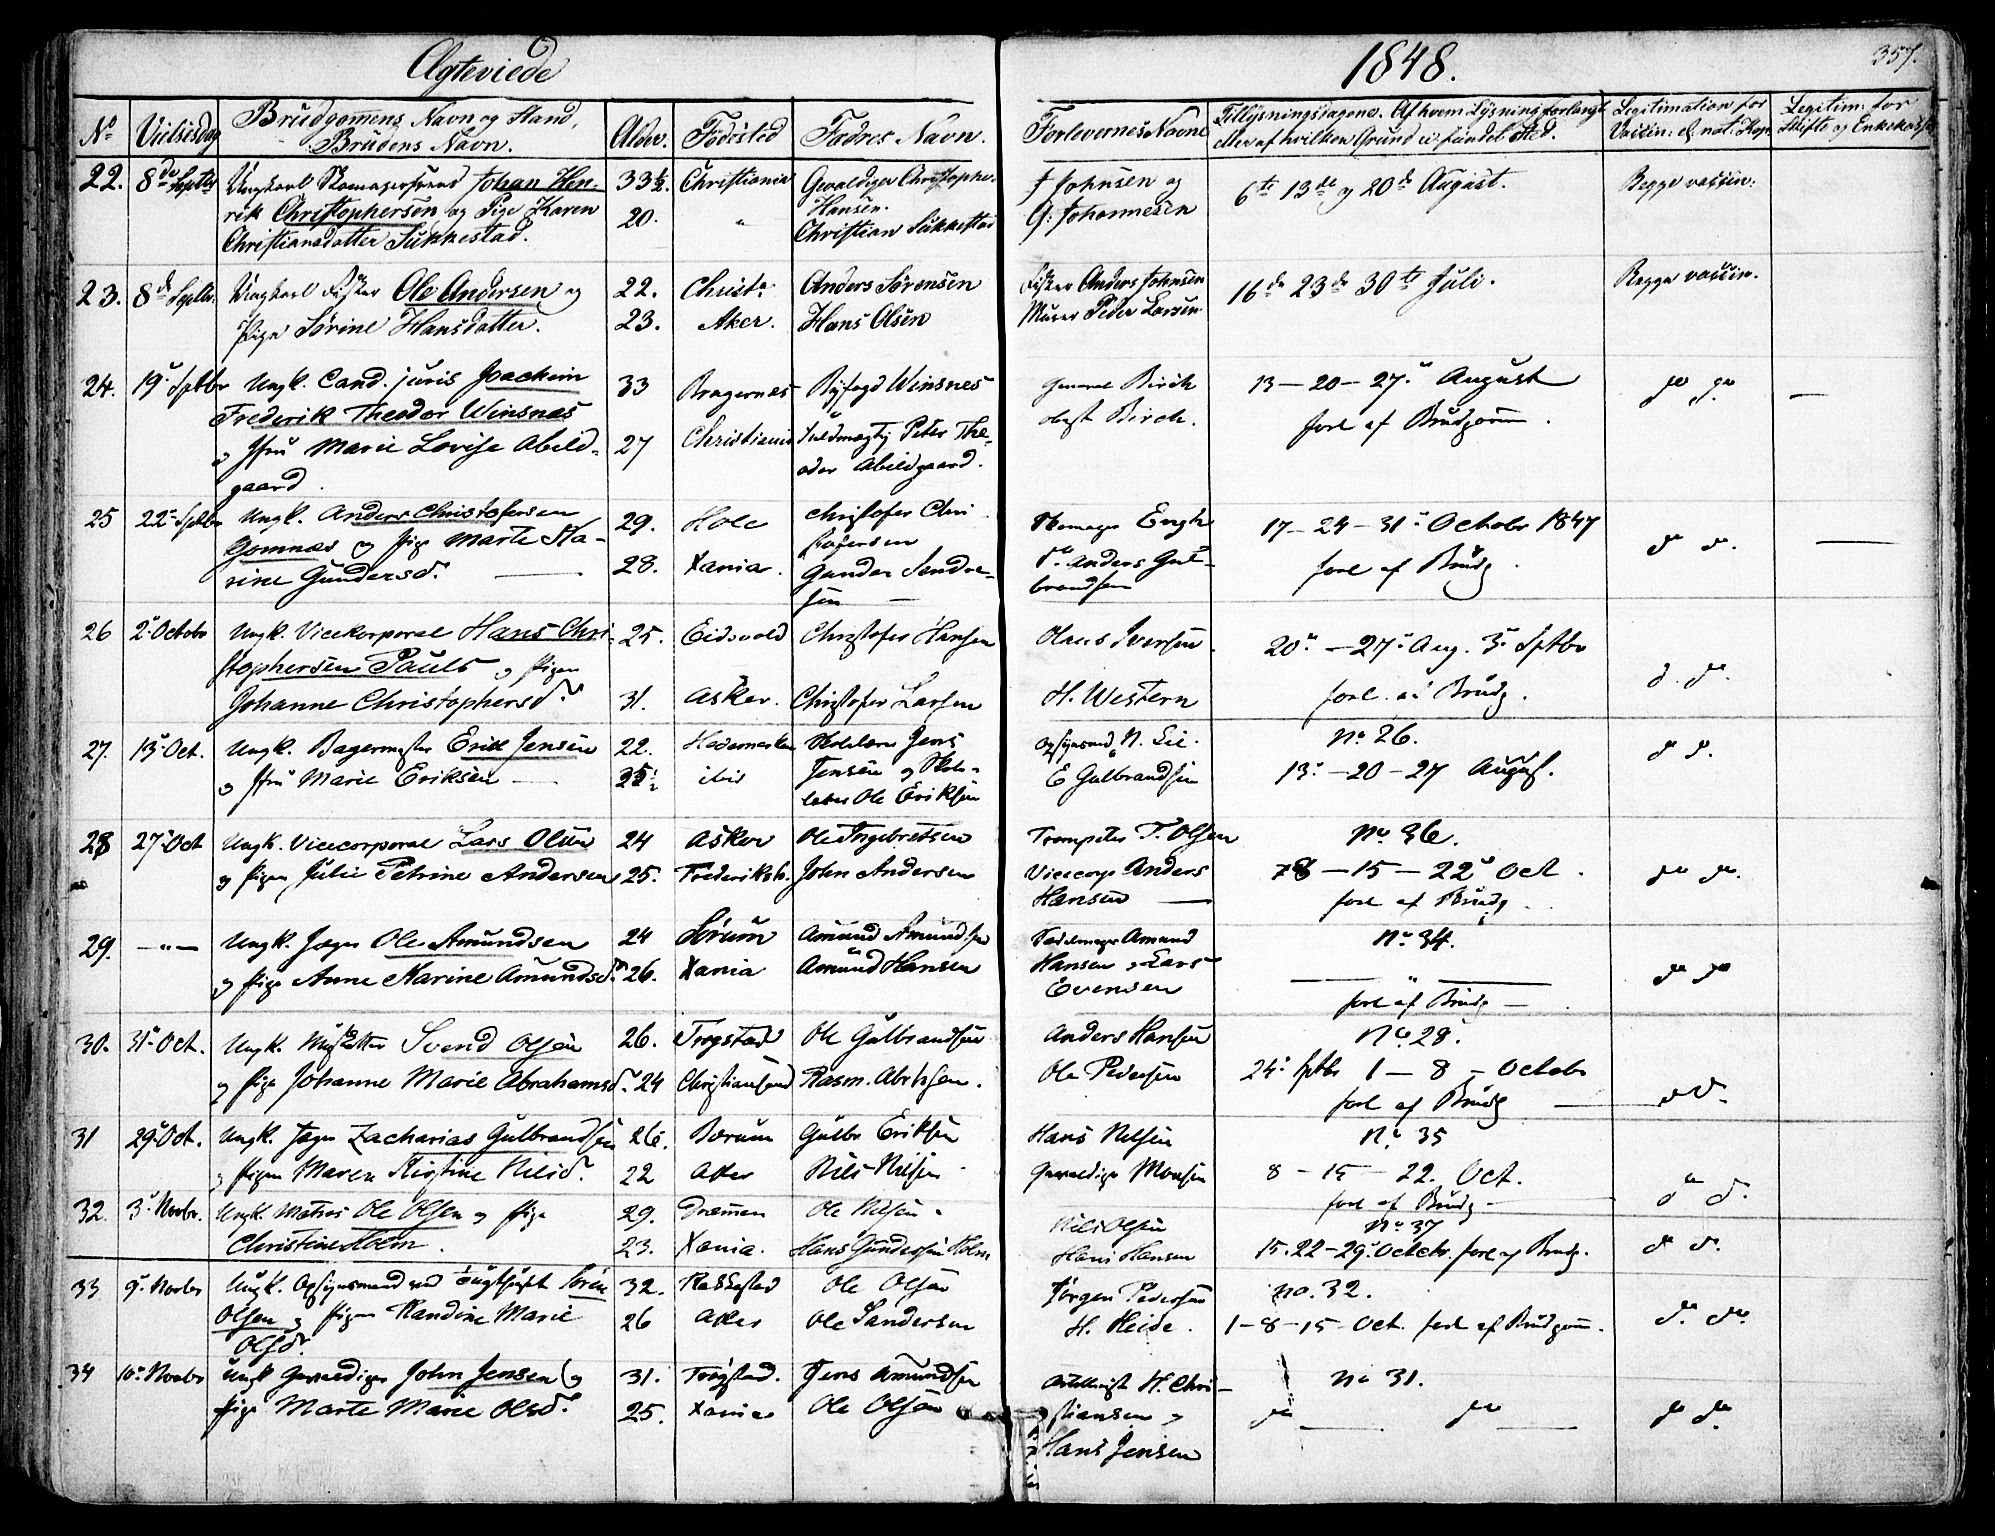 Ægteviede 1848. 357.
No Vielsesdag Brudgommens Navn og Stand, Brudens Navn. Alder. Födested Fadres Navn. Forlovernes Navne Tillysningsdagene. Af hvem Lysning forlangt eller af hvilken Grund ei fundet Sted. Legitimation for Vaccin: el. nat. Kop. Legitim: for Skifte og Enkekasse
22. 8de Septbr Ungkarl Skomagersvend Johan Hen- 33½ Christiania Gevaldiger Christopher J Johnsen og 6te 13de og 20de August. Begge vaccin:
rik Christophersen og Pige Karen 20. " Hansen. G: Johannesen
Christiansdatter Sukkestad. Christian Sukkestad
23. 8de Septbr. Ungkarl Fisker Ole Andersen og 22. Christa Anders Sörensen Fisker Anders Johnsen 16de 23de 30te Juli. Begge vaccin.
Pige Sörine Hansdatter. 23. Aker. Hans Olsen Murer Peder Larsen
24. 19. Sptbr Ungk. Cand. juris Joachim 33 Bragernæs Byfogd Winsnes General Birch 13 – 20 – 27. August do do. —
Frederik Theodor Winsnæs forl af Brudgomm.
og Jfru Marie Lovise Abild- 27 Christiania Fuldmægtig Peter The- obrst Birch.
gaard. odor Abildgaard.
25 22. Sptbr Ungk. Anders Christofersen 29. Hole Christofer Chri- Skomager Engh 17 – 24 – 31. Octobr 1847 do do. —
Gomnæs og Pige Marte Ka- stofersen do Anders Gul- forl af Brudg.
rine Gundersd. 28. Xania. Gunder brandsen
sen
26 2. Octobr Ungk. Vicekorporal Hans Chri- 25. Eidsvold Christofer Hansen Hans Iversen. 20. – 27. Aug. 3. Sptbr d. do.
stophersen Pauls og Pigen
Johanne Christophersd. 31. Asker. Christofer Larsen H. Western forl. af Brudg.
27. 13. Oct. Ungk. Bagermester Erik Jensen 22. Hedemarken Skolelærer Jens Opsynsmd N. Lie. No. 26. d d.
og Jfru Marie Eriksen — 25. ibid Jensen og Skole- E Gulbrandsen 13. – 20 – 27 August.
lærer Ole Eriksen
28 27. Oct Ungk. Vicecorporal Lars Olsen 24 Asker Ole Ingebretsen Trompeter T. Olsen No. 36.
og Pigen Julie Petrine Andersen 25. Frederiksh. John Andersen Vicecorp Anders 8 – 15 – 22. Oct. do do.
Hansen — forl af Brudg.
29. — " — Ungk. Jæger Ole Amundsen 24 Sörum Amund Amundsen Sadelmager Amund No. 34.
og Pige Anne Karine Amundsd. 26. Xania Amund Hansen Hansen og Lars — " — do do
Evensen forl af Brudg —
30. 31. Oct. Ungk. Svend Olsen 26. Trøgstad Ole Gulbrandsen Anders Hansen No. 28.
og Pige Johanne Marie Abrahamsd. 24 Christiansund Rasm. Abrhsen. Ole Pedersen 24. Sptbr 1 – 8 – Octobr
forl af Brudg — d d.
31 29. Oct. Ungk. Jæger Zacharias Gulbrandsen 26. Bærum Gulbr Eriksen Hans Nilsen No. 35
og Pigen Maren Kirstine Nilsd. 22 Aker Nils Nilsen Gevaldiger Monsen 8 – 15 – 22. Oct. do d.
forl af Brudg —
32. 3. Novbr. Ungk. Matros Ole Olsen og Pige 29. Drammen Ole Nilsen Nils Olsen No 37
Christine Holm. 23. Xania. Hans Gundersen Holm Hans Hansen 15. 22 – 29. Octobr. forl af Brudg. do do.
33 9. Novbr Ungk. Opsynsmand ved Tugthuset Sören 32. Rakkestad Ole Olsen Jörgen Pedersen No. 32.
Olsen og Pigen Randine Marie 26 Aker Ole Sandersen H. Heide. 1 – 8 – 15 – Oct. forl af Brudgomm. do. do.
Olsd.
34 10. Novbr Ungk Gevaldiger John Jensen og 31. Trögstad. Jens Amundsen H. Chri- No 31.
Pige Marte Marie Olsd. 25. Xania Ole Olsen stiansen og do — do — do do.
Hans Jensen